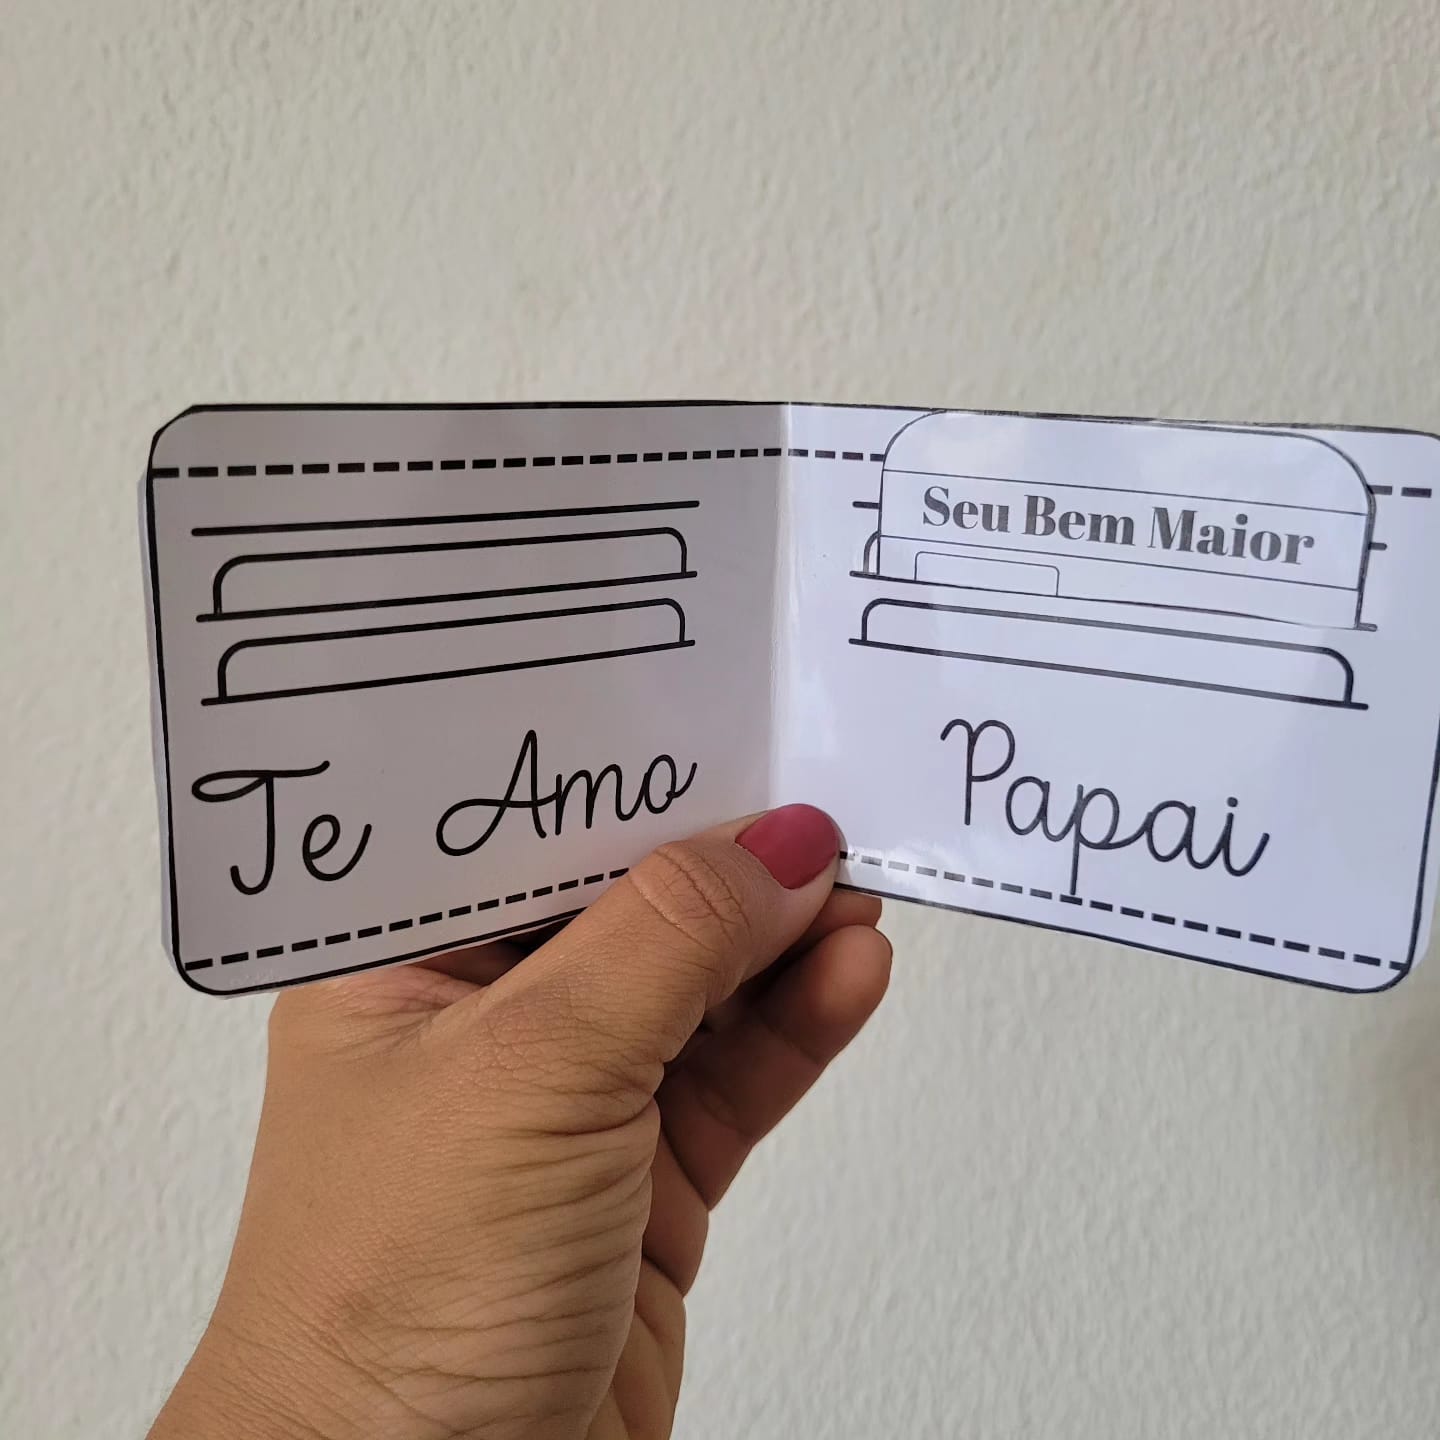 Seu Bem Maior
Te Amo
Papai